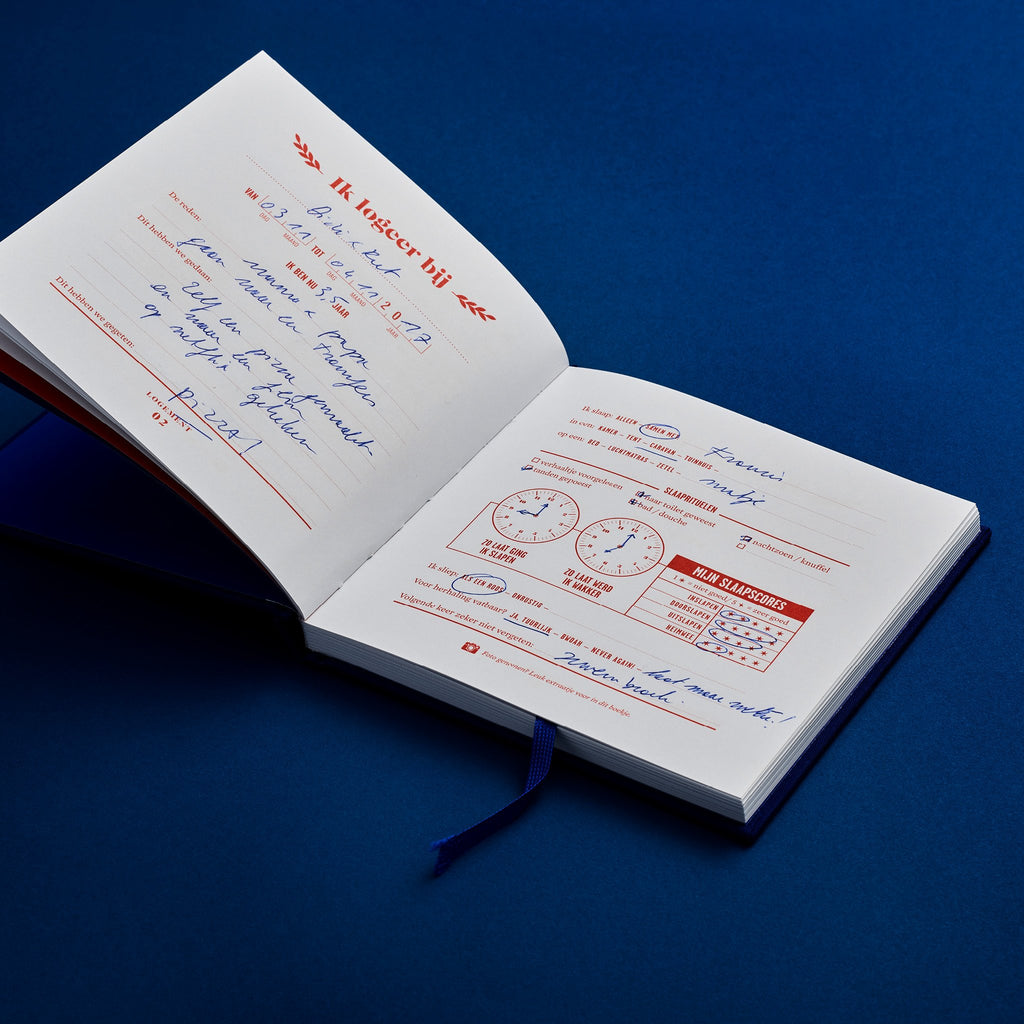 Ik logeer bij
VAN 03 11 TOT 04 11 2017
DAG MAAND DAG MAAND JAAR
IK BEN NU 3,5 JAAR
De reden:
mama & papa
gaan naar een
Dit hebben we gedaan:
zelf een pizza gemaakt
en naar een
op netflix gekeken
Dit hebben we gegeten:
pizza!
LOGEMENT
02
Ik slaap: ALLEEN - SAMEN MET
in een: KAMER - TENT - CARAVAN - TUINHUIS -
op een: BED - LUCHTMATRAS - ZETEL -
matje
SLAAPRITUELEN
verhaaltje voorgelezen
tanden gepoetst
naar toilet geweest
bad / douche
nachtzoen / knuffel
ZO LAAT GING
IK SLAPEN
ZO LAAT WERD
IK WAKKER
MIJN SLAAPSCORES
1 ★ = niet goed / 5 ★ = zeer goed
INSLAPEN ★ ★ ★ ★ ★
DOORSLAPEN ★ ★ ★ ★ ★
UITSLAPEN ★ ★ ★ ★ ★
HEIMWEE ★ ★ ★ ★ ★
Ik sliep: ALS EEN ROOS - ONRUSTIG -
Voor herhaling vatbaar? JA, TUURLIJK - BWOAH - NEVER AGAIN! -
Volgende keer zeker niet vergeten: zwembroek.
Foto genomen? Leuk extraatje voor in dit boekje.